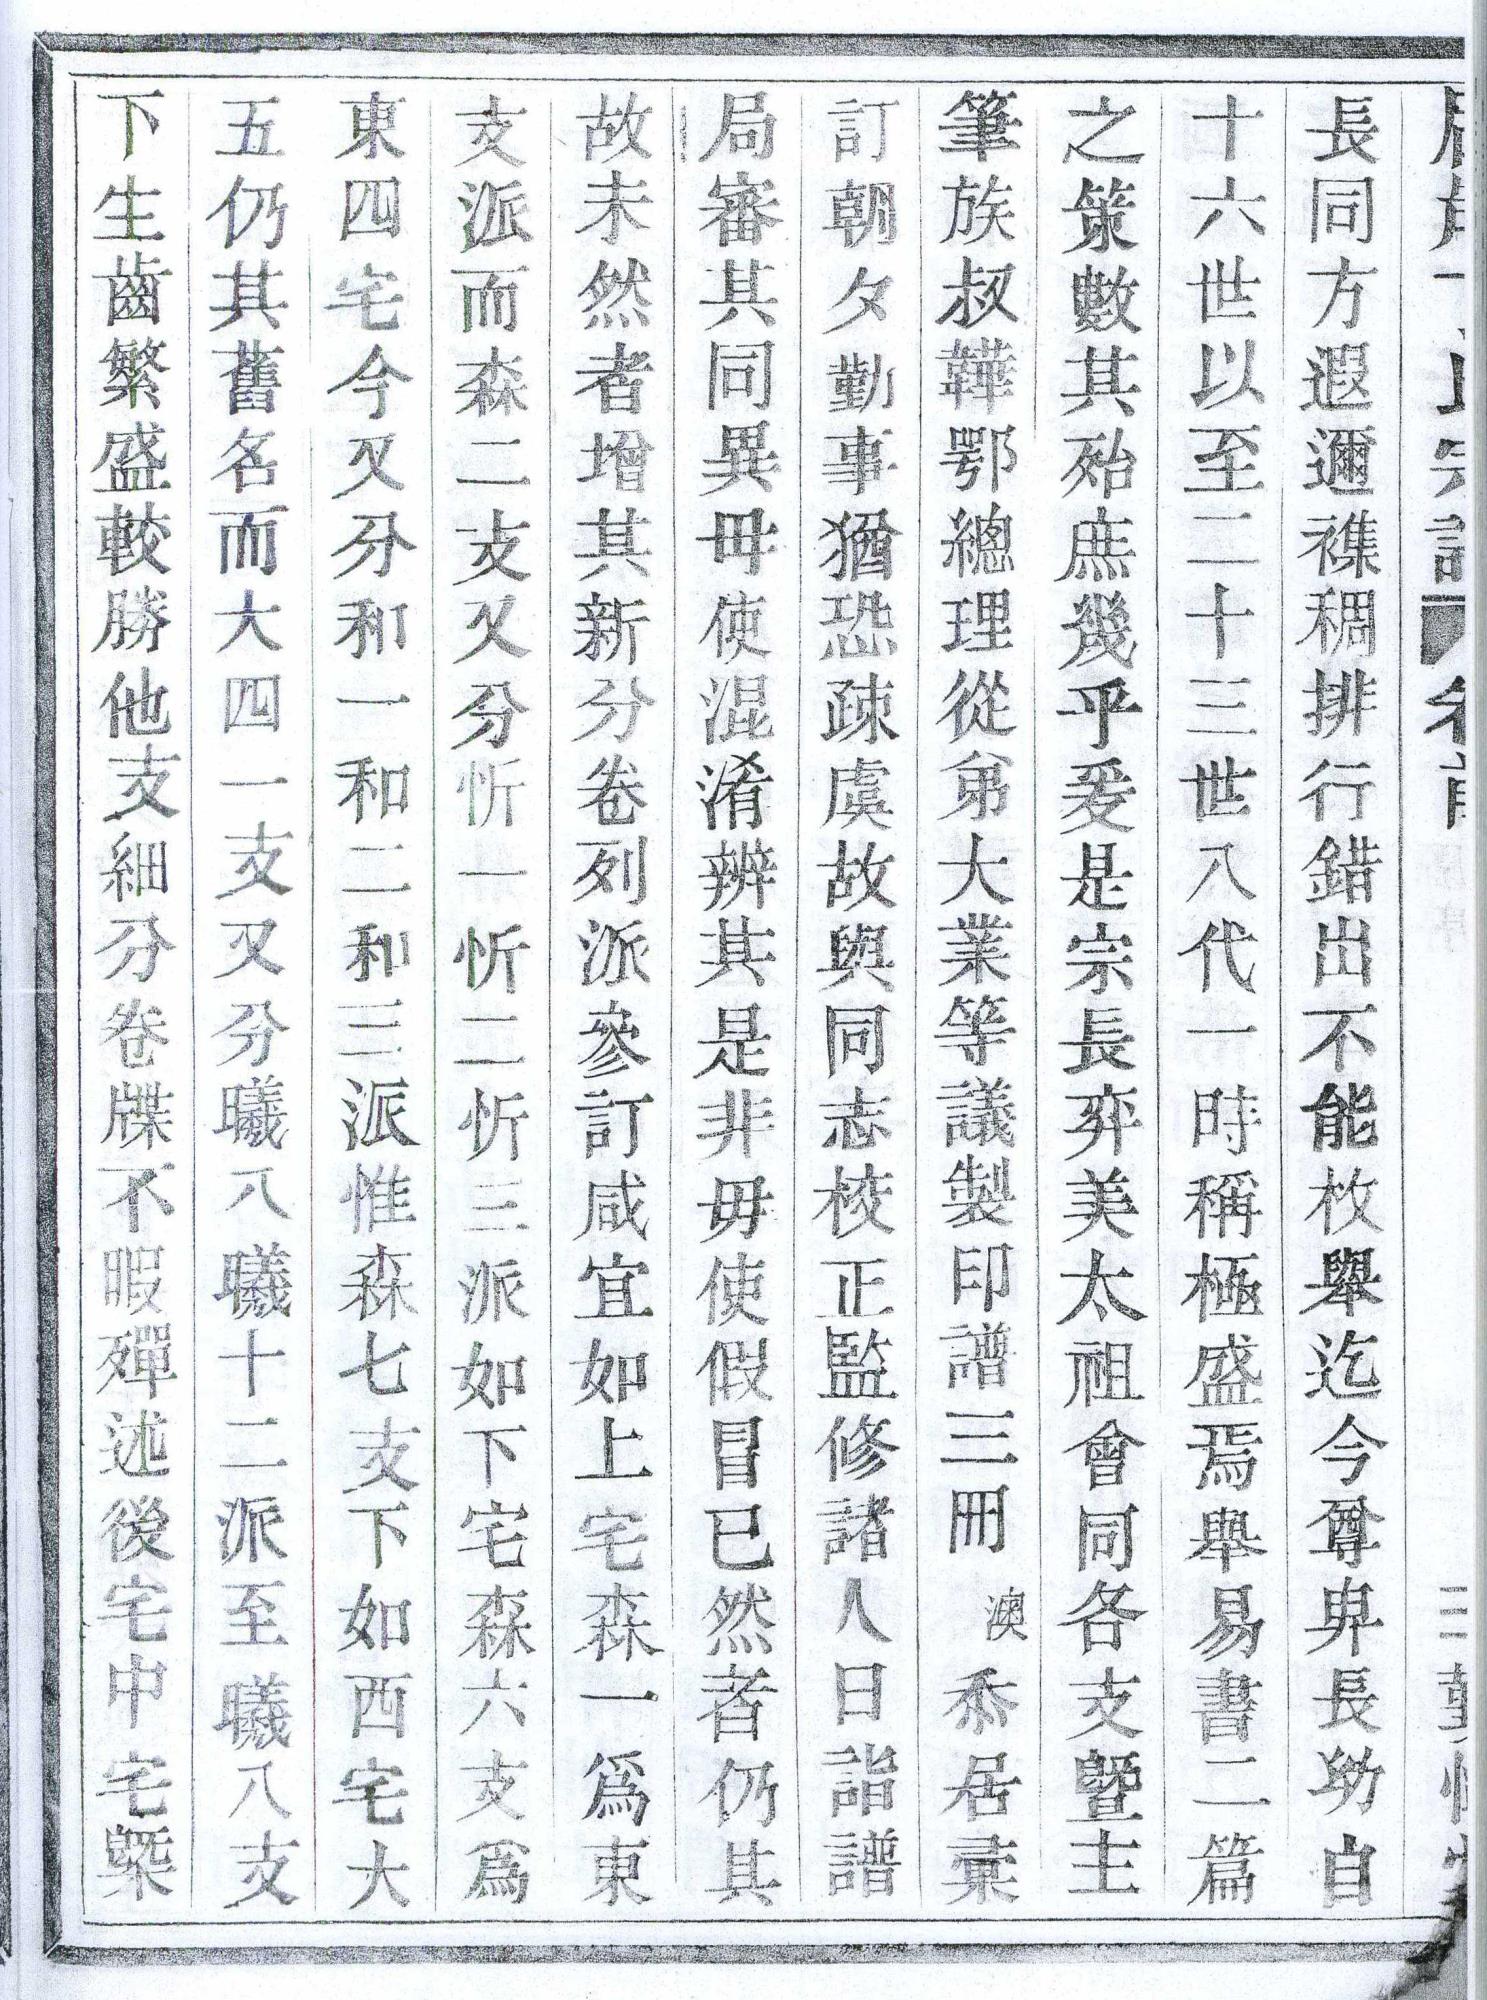 長同方遐邇襍稠排行錯出不能枚舉迄今尊卑長幼自
十六世以至二十三世八代一時稱極盛焉舉易書二篇
之策數其殆庶幾乎爰是宗長弈美太祖會同各支暨主
筆族叔韡鄂總理從弟大業等議製印譜三冊澳忝居彙
訂朝夕勤事猶恐疎虞故與同志校正監修諸人日詣譜
局審其同異毋使混淆辨其是非毋使假冒已然者仍其
故未然者增其新分卷列派參訂咸宜如上宅森一爲東
支派而森二支又分忻一忻二忻三派如下宅森六支爲
東四宅今又分和一和二和三派惟森七支下如西宅大
五仍其舊名而大四一支又分曦八曦十二派至曦八支
下生齒繁盛較勝他支細分卷牒不暇殫述後宅中宅槩